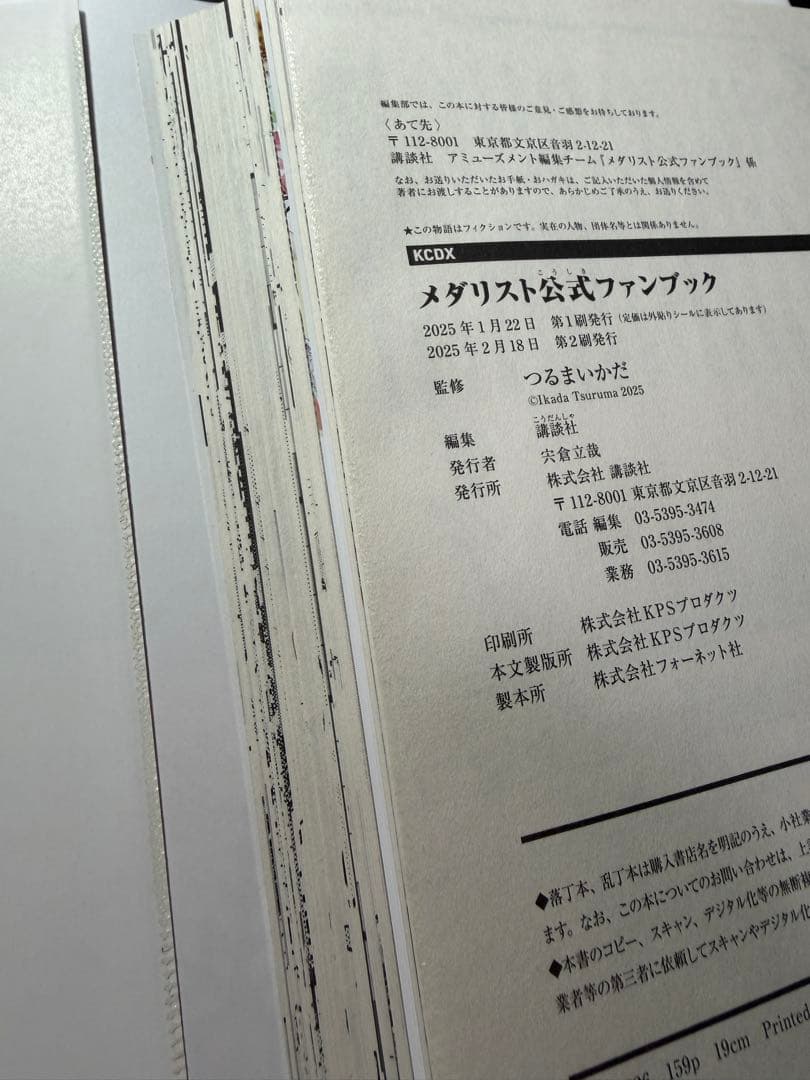 編集部では、この本に対する皆様のご意見・ご感想をお待ちしております。
〈あて先〉
〒112-8001 東京都文京区音羽2-12-21
講談社 アミューズメント編集チーム『メダリスト公式ファンブック』係
なお、お送りいただいたお手紙・おハガキは、ご記入いただいた個人情報を含めて
著者にお渡しすることがありますので、あらかじめご了承のうえ、お送りください。
★この物語はフィクションです。実在の人物、団体名等とは関係ありません。
KCDX
こうしき
メダリスト公式ファンブック
2025年1月22日 第1刷発行(定価は外貼りシールに表示してあります)
2025年2月18日 第2刷発行
監修 つるまいかだ
©Ikada Tsuruma 2025
こうだんしゃ
編集 講談社
発行者 宍倉立哉
発行所 株式会社 講談社
〒112-8001 東京都文京区音羽2-12-21
電話 編集 03-5395-3474
販売 03-5395-3608
業務 03-5395-3615
印刷所 株式会社KPSプロダクツ
本文製版所 株式会社KPSプロダクツ
製本所 株式会社フォーネット社
◆落丁本、乱丁本は購入書店名を明記のうえ、小社業
ます。なお、この本についてのお問い合わせは、上
◆本書のコピー、スキャン、デジタル化等の無断複
業者等の第三者に依頼してスキャンやデジタル化
159p 19cm Printed